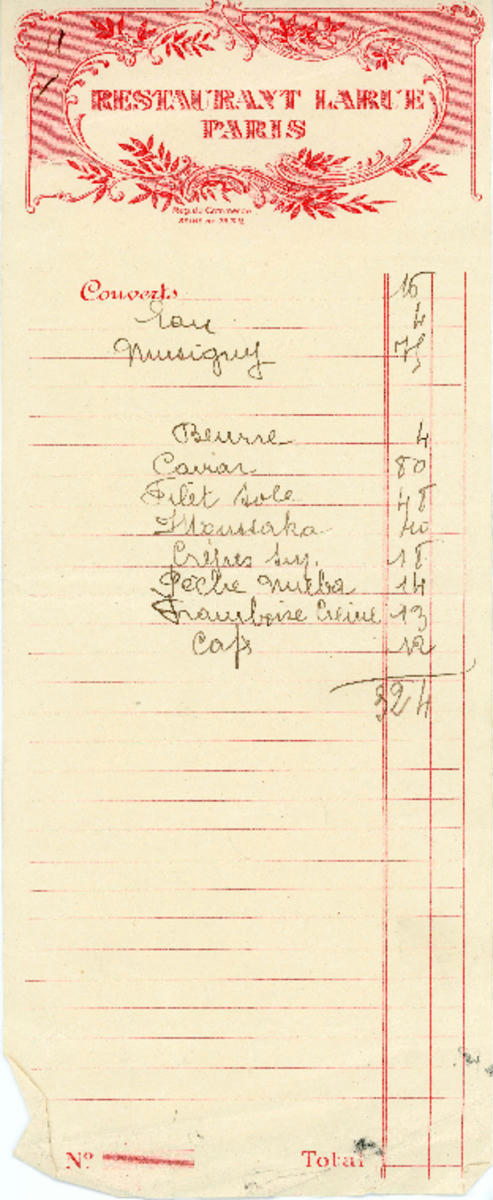 RESTAURANT LARUE
PARIS
Reg. du Commerce
Couverts 15
Eau 4
Musigny 75
Beurre 4
Caviar 80
Filet Sole 48
Moussaka 40
Crêpes Suz. 18
Pêche Melba 14
Framboise Crème 13
Café 12
324
Nº Total